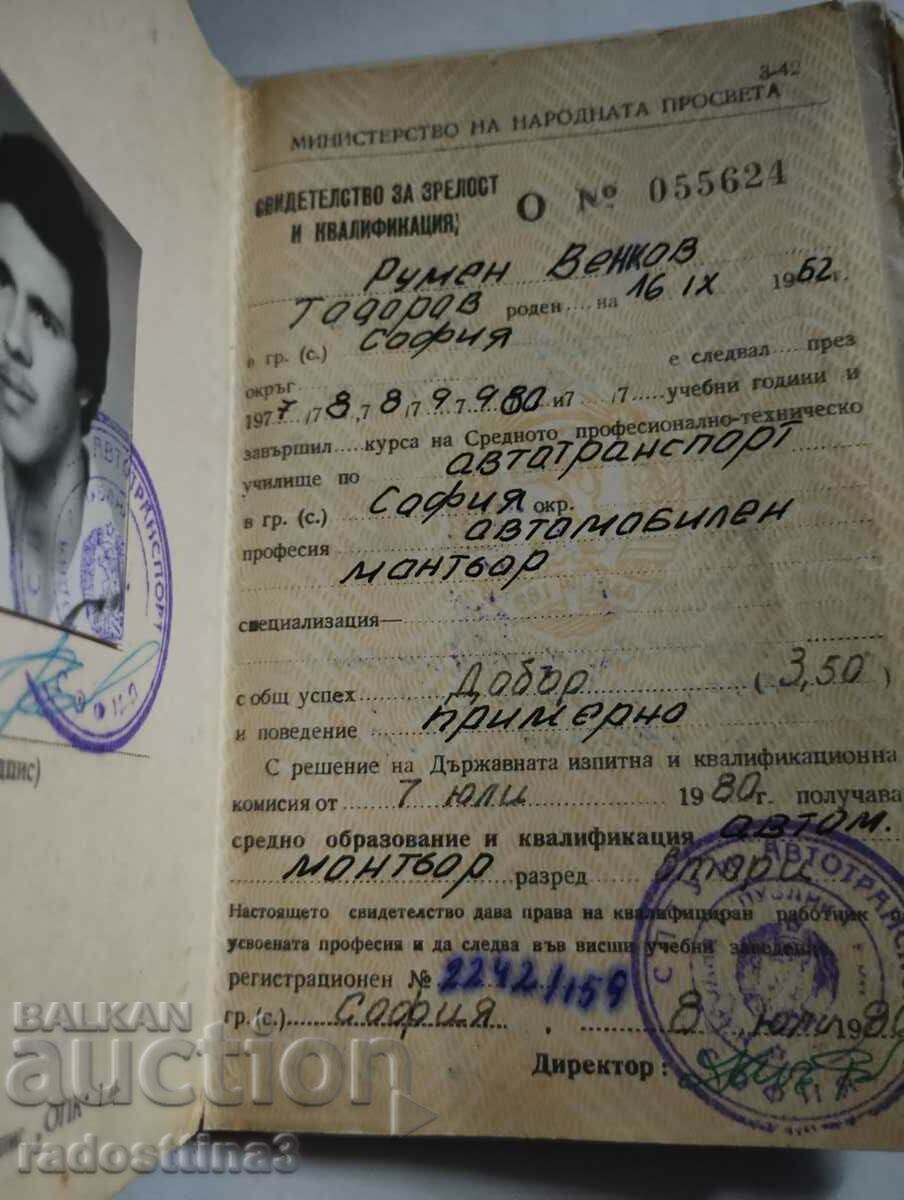 3-42
МИНИСТЕРСТВО НА НАРОДНАТА ПРОСВЕТА
СВИДЕТЕЛСТВО ЗА ЗРЕЛОСТ
И КВАЛИФИКАЦИЯ,
О № 055624
Румен Венков
Тодоров роден на 16 IX 1962 г.
в гр. (с.) София
окръг е следвал през
1977/78, 78/79, 79/80 и 7 /7 учебни години и
завършил курса на Средното професионално-техническо
училище по автотранспорт
в гр. (с.) София окр.
професия автомобилен
монтьор
специализация—
с общ успех Добър (3,50)
и поведение примерно
С решение на Държавната изпитна и квалификационна
комисия от 7 юли 1980 г. получава
средно образование и квалификация автом.
монтьор разред втори
Настоящето свидетелство дава права на квалифициран работник
усвоената професия и да следва във висши учебни заведения
регистрационен № 2242/159
гр. (с.) София, 8 юли 1980
Директор:
СПТУ АВТОТРАНСПОРТ
АВТОТРАНСПОРТ
дпис)
ОПК-14
BALKAN
auction
radosttina3